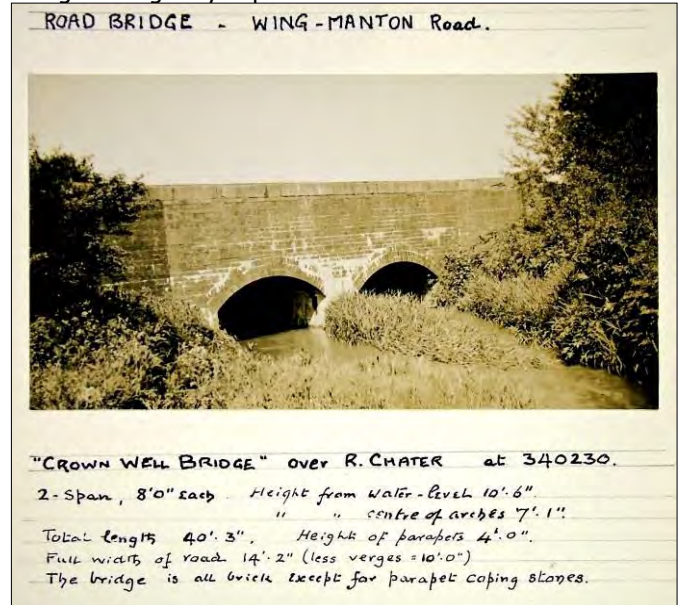 ROAD BRIDGE - WING-MANTON Road.
"CROWN WELL BRIDGE" over R. CHATER at 340230.
2-Span, 8'0" Each. Height from water-level 10'.6".
" " centre of arches 7'.1".
Total length 40'.3". Height of parapets 4'.0".
Full width of road 14'.2" (less verges = 10'.0")
The bridge is all brick except for parapet coping stones.